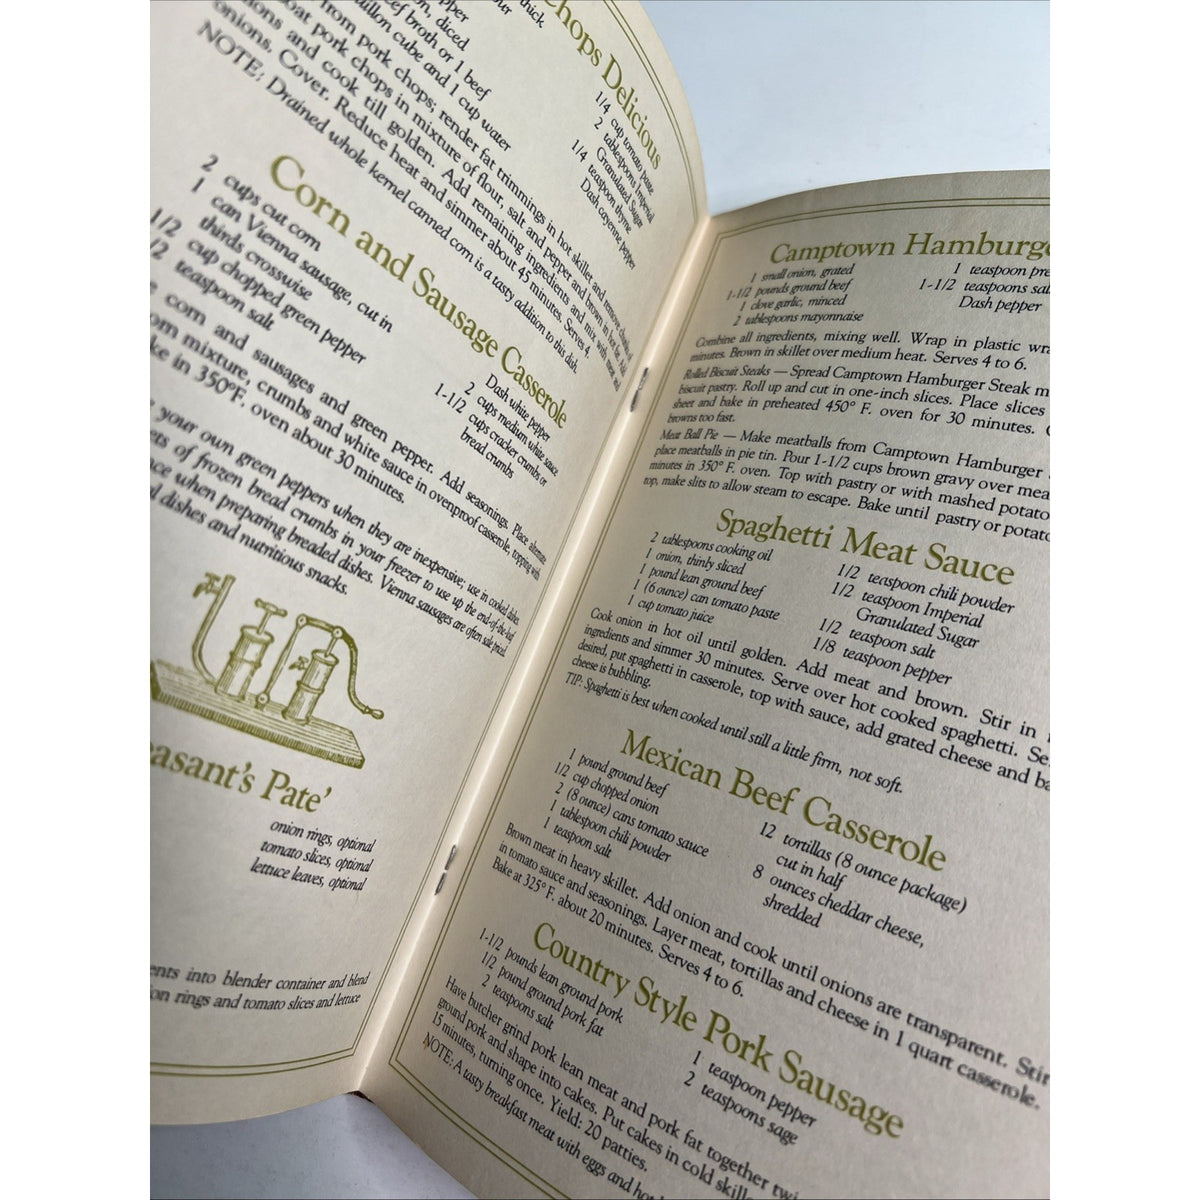 Chops Delicious
thick
our
pepper
onion, diced
beef broth or 1 beef
bouillon cube and 1 cup water
1/4 cup tomato paste
2 tablespoons Imperial
Granulated Sugar
1/4 teaspoon thyme
Dash cayenne pepper
from pork chops; render fat trimmings in hot skillet and remove
oat pork chops in mixture of flour, salt and pepper and brown in hot fat. Add
and cook till golden. Add remaining ingredients and mix with meat and
onions. Cover. Reduce heat and simmer about 45 minutes. Serves 4.
NOTE; Drained whole kernel canned corn is a tasty addition to this dish.
Corn and Sausage Casserole
2 cups cut corn
1 can Vienna sausage, cut in
thirds crosswise
1/2 cup chopped green pepper
1/2 teaspoon salt
Dash white pepper
2 cups medium white sauce
1-1/2 cups cracker crumbs or
bread crumbs
corn and sausages and green pepper. Add seasonings. Place alternate
om mixture, crumbs and white sauce in ovenproof casserole, topping with
ke in 350°F. oven about 30 minutes.
your own green peppers when they are inexpensive; use in cooked dishes.
ets of frozen bread crumbs in your freezer to use up the end-of-the-loaf
nce when preparing breaded dishes. Vienna sausages are often sale priced.
l dishes and nutritious snacks.
easant's Pate'
onion rings, optional
tomato slices, optional
lettuce leaves, optional
ents into blender container and blend
on rings and tomato slices and lettuce
Camptown Hamburger
1 small onion, grated
1-1/2 pounds ground beef
1 clove garlic, minced
2 tablespoons mayonnaise
1 teaspoon pre
1-1/2 teaspoons sal
Dash pepper
Combine all ingredients, mixing well. Wrap in plastic wra
minutes. Brown in skillet over medium heat. Serves 4 to 6.
Rolled Biscuit Steaks — Spread Camptown Hamburger Steak m
biscuit pastry. Roll up and cut in one-inch slices. Place slices
sheet and bake in preheated 450° F. oven for 30 minutes. C
browns too fast.
Meat Ball Pie — Make meatballs from Camptown Hamburger
place meatballs in pie tin. Pour 1-1/2 cups brown gravy over mea
minutes in 350° F. oven. Top with pastry or with mashed potato
top, make slits to allow steam to escape. Bake until pastry or potato
Spaghetti Meat Sauce
2 tablespoons cooking oil
1 onion, thinly sliced
1 pound lean ground beef
1 (6 ounce) can tomato paste
1 cup tomato juice
1/2 teaspoon chili powder
1/2 teaspoon Imperial
Granulated Sugar
1/2 teaspoon salt
1/8 teaspoon pepper
Cook onion in hot oil until golden. Add meat and brown. Stir in
ingredients and simmer 30 minutes. Serve over hot cooked spaghetti. Se
desired, put spaghetti in casserole, top with sauce, add grated cheese and ba
cheese is bubbling.
TIP: Spaghetti is best when cooked until still a little firm, not soft.
Mexican Beef Casserole
1 pound ground beef
1/2 cup chopped onion
2 (8 ounce) cans tomato sauce
1 tablespoon chili powder
1 teaspoon salt
12 tortillas (8 ounce package)
cut in half
8 ounces cheddar cheese,
shredded
Brown meat in heavy skillet. Add onion and cook until onions are transparent. Stir
in tomato sauce and seasonings. Layer meat, tortillas and cheese in 1 quart casserole.
Bake at 325° F. about 20 minutes. Serves 4 to 6.
Country Style Pork Sausage
1-1/2 pounds lean ground pork
1/2 pound ground pork fat
2 teaspoons salt
1 teaspoon pepper
2 teaspoons sage
Have butcher grind pork lean meat and pork fat together twi
ground pork and shape into cakes. Put cakes in cold skille
15 minutes, turning once. Yield: 20 patties.
NOTE: A tasty breakfast meat with eggs and hot